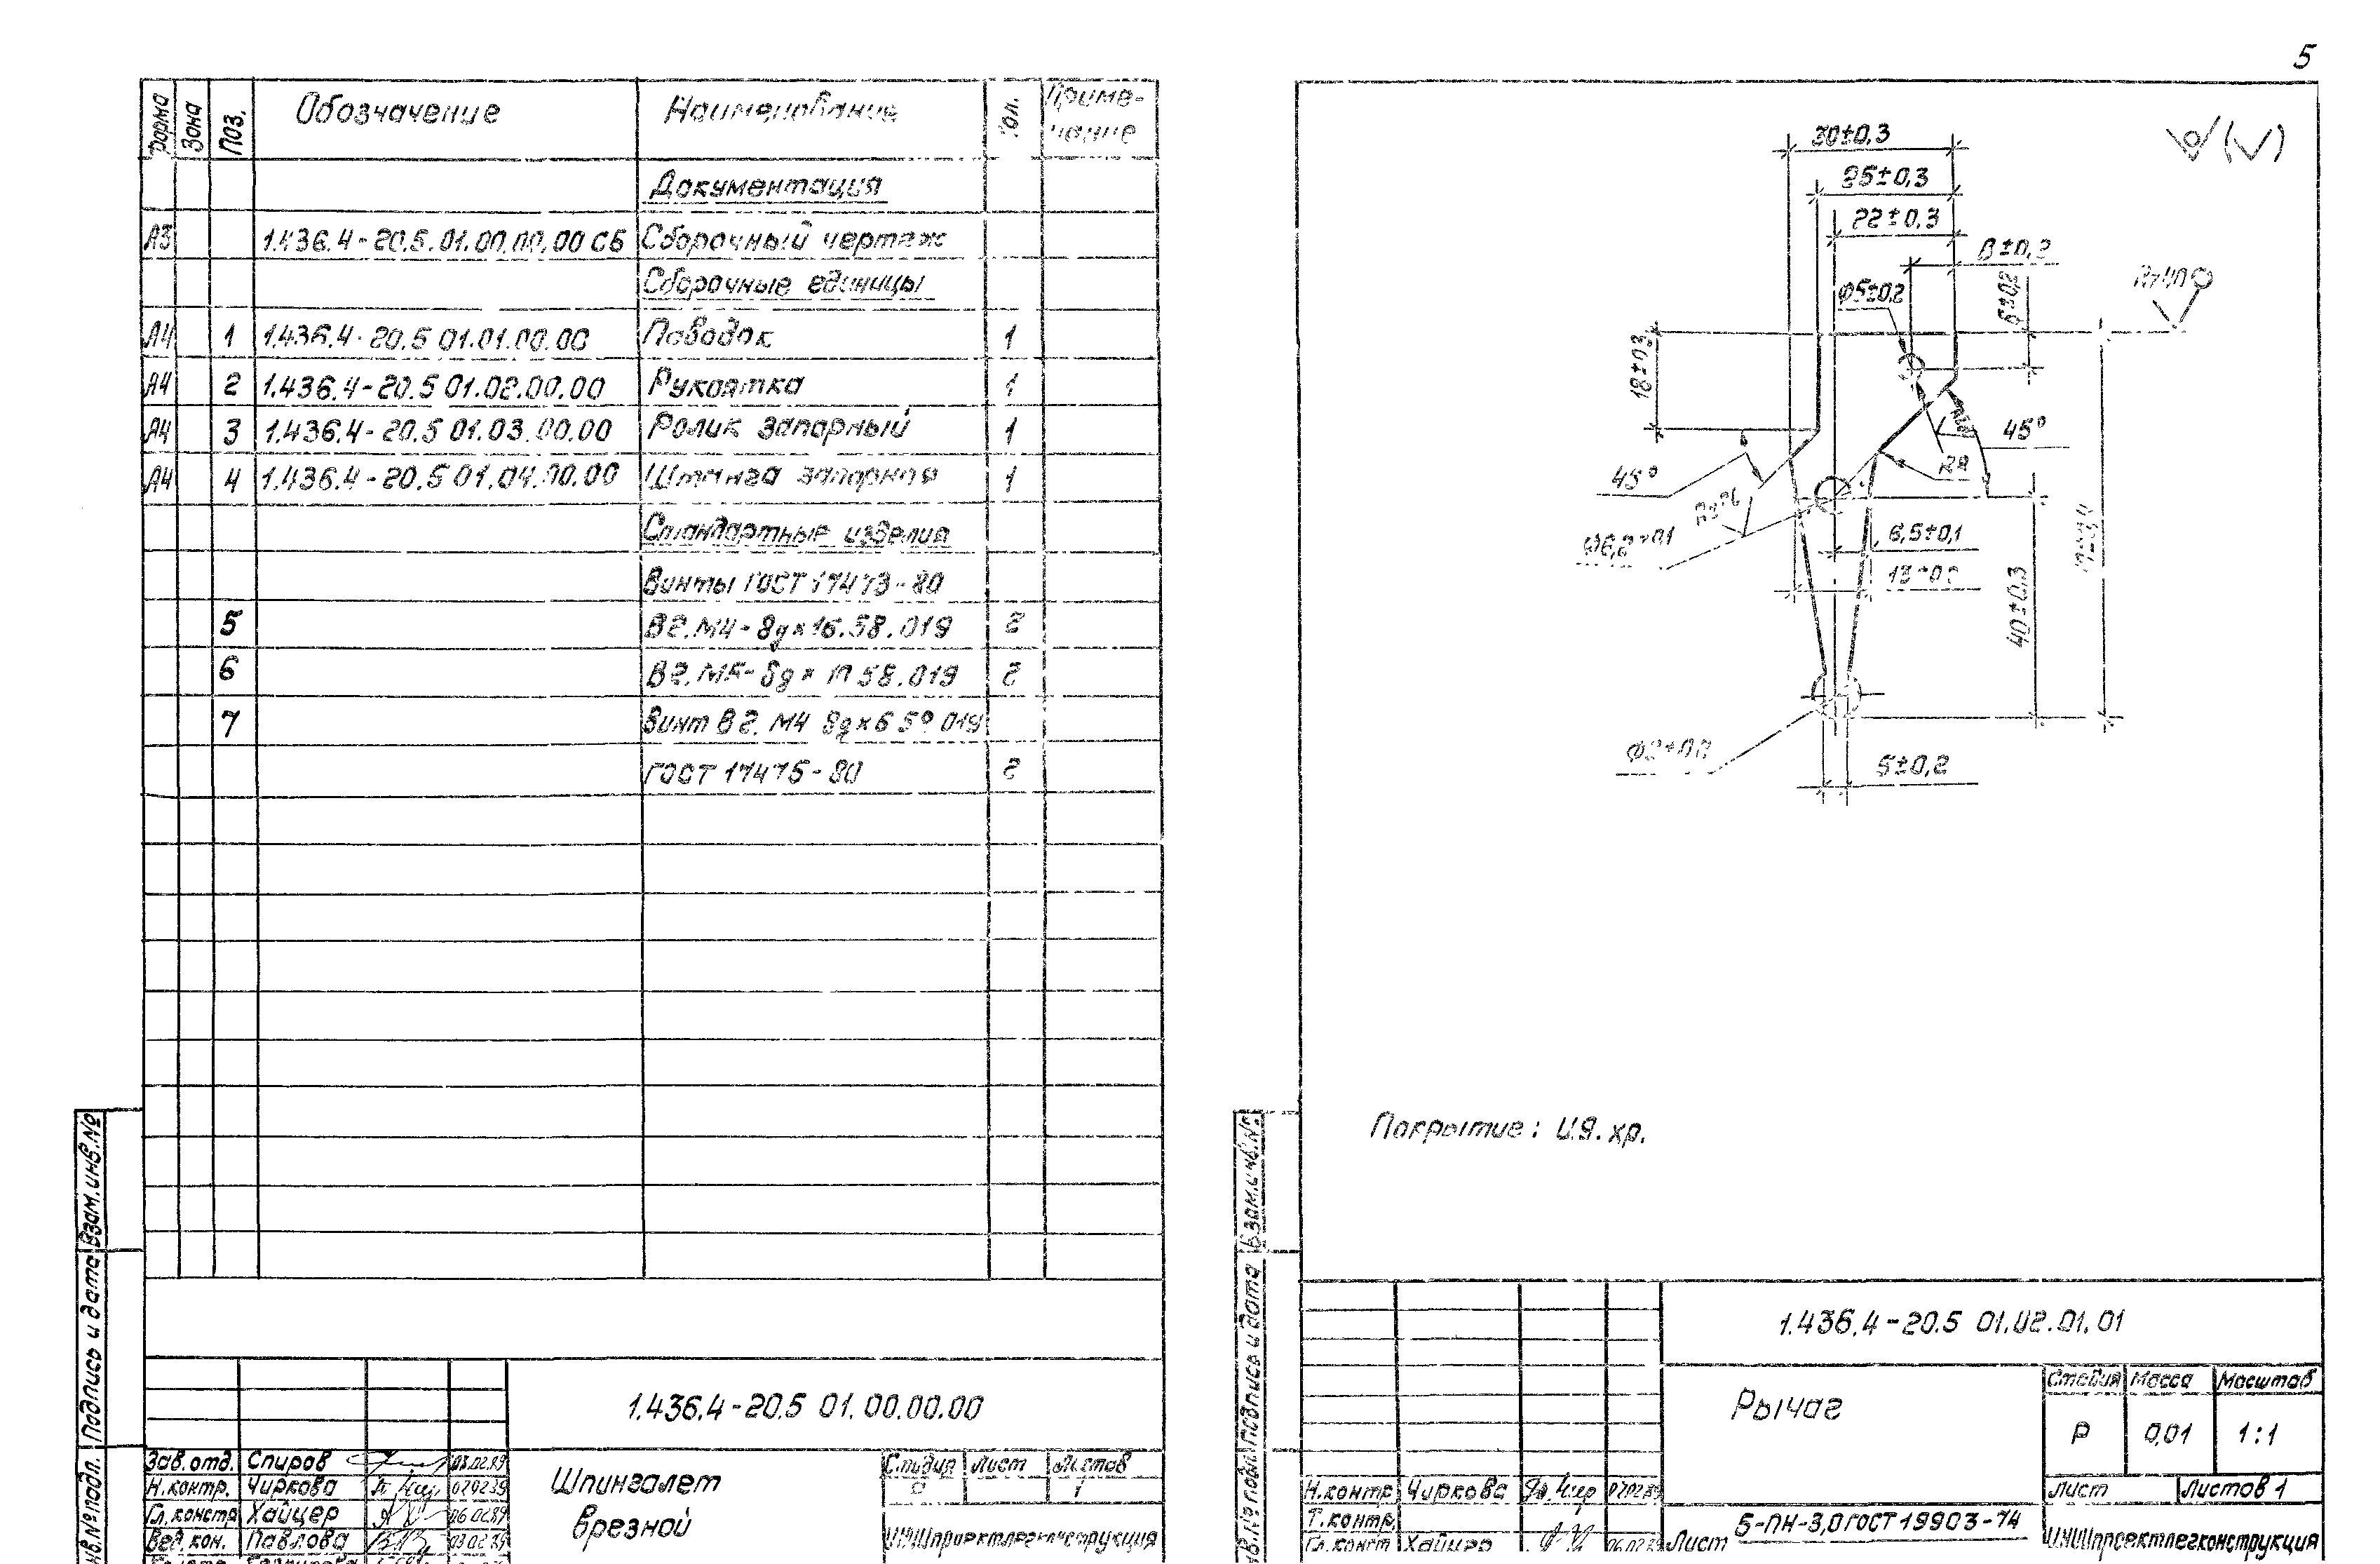 5
Форма Зона Поз. Обозначение Наименование Кол. Приме-
чание
Документация
А3 1.436.4-20.5.01.00.00.00 СБ Сборочный чертеж
Сборочные единицы
А4 1 1.436.4-20.5 01.01.00.00 Поводок 1
А4 2 1.436.4-20.5 01.02.00.00 Рукоятка 1
А4 3 1.436.4-20.5 01.03.00.00 Ролик запорный 1
А4 4 1.436.4-20.5 01.04.00.00 Штанга запорная 1
Стандартные изделия
Винты ГОСТ 17473-80
5 В2.М4-8gx16.58.019 2
6 В2.М5-8gx 58.019 2
7 Винт В2.М4 8gx6 019
ГОСТ 17475-80 2
Взам.инв.№
Подпись и дата
Инв.№ подл.
1.436.4-20.5 01.00.00.00
Зав.отд. Спиров 03.02.89
Н.контр. Чиркова
Гл.констр Хайцер 06.02.89
Вед.кон. Павлова 03.02.89
Шпингалет
врезной
Стадия Лист Листов
Р 1
ЦНИИпроектлегконструкция
30±0,3
25±0,3
22±0,3
8±0,3
Ø5±0,2
6±0,2
Rz40
18±0,3
45°
45°
R8
Ø6,2±0,1
6,5±0,1
13±0,2
40±0,3
5±0,2
Покрытие: Ц.9.хр.
Взам.инв.№
Подпись и дата
Инв.№ подл.
1.436.4-20.5 01.02.01.01
Рычаг
Стадия Масса Масштаб
Р 0,01 1:1
Лист Листов 1
Н.контр Чиркова
Т.контр.
Гл.констр Хайцер 06.02.89
Лист Б-ПН-3,0 ГОСТ 19903-74
ЦНИИпроектлегконструкция